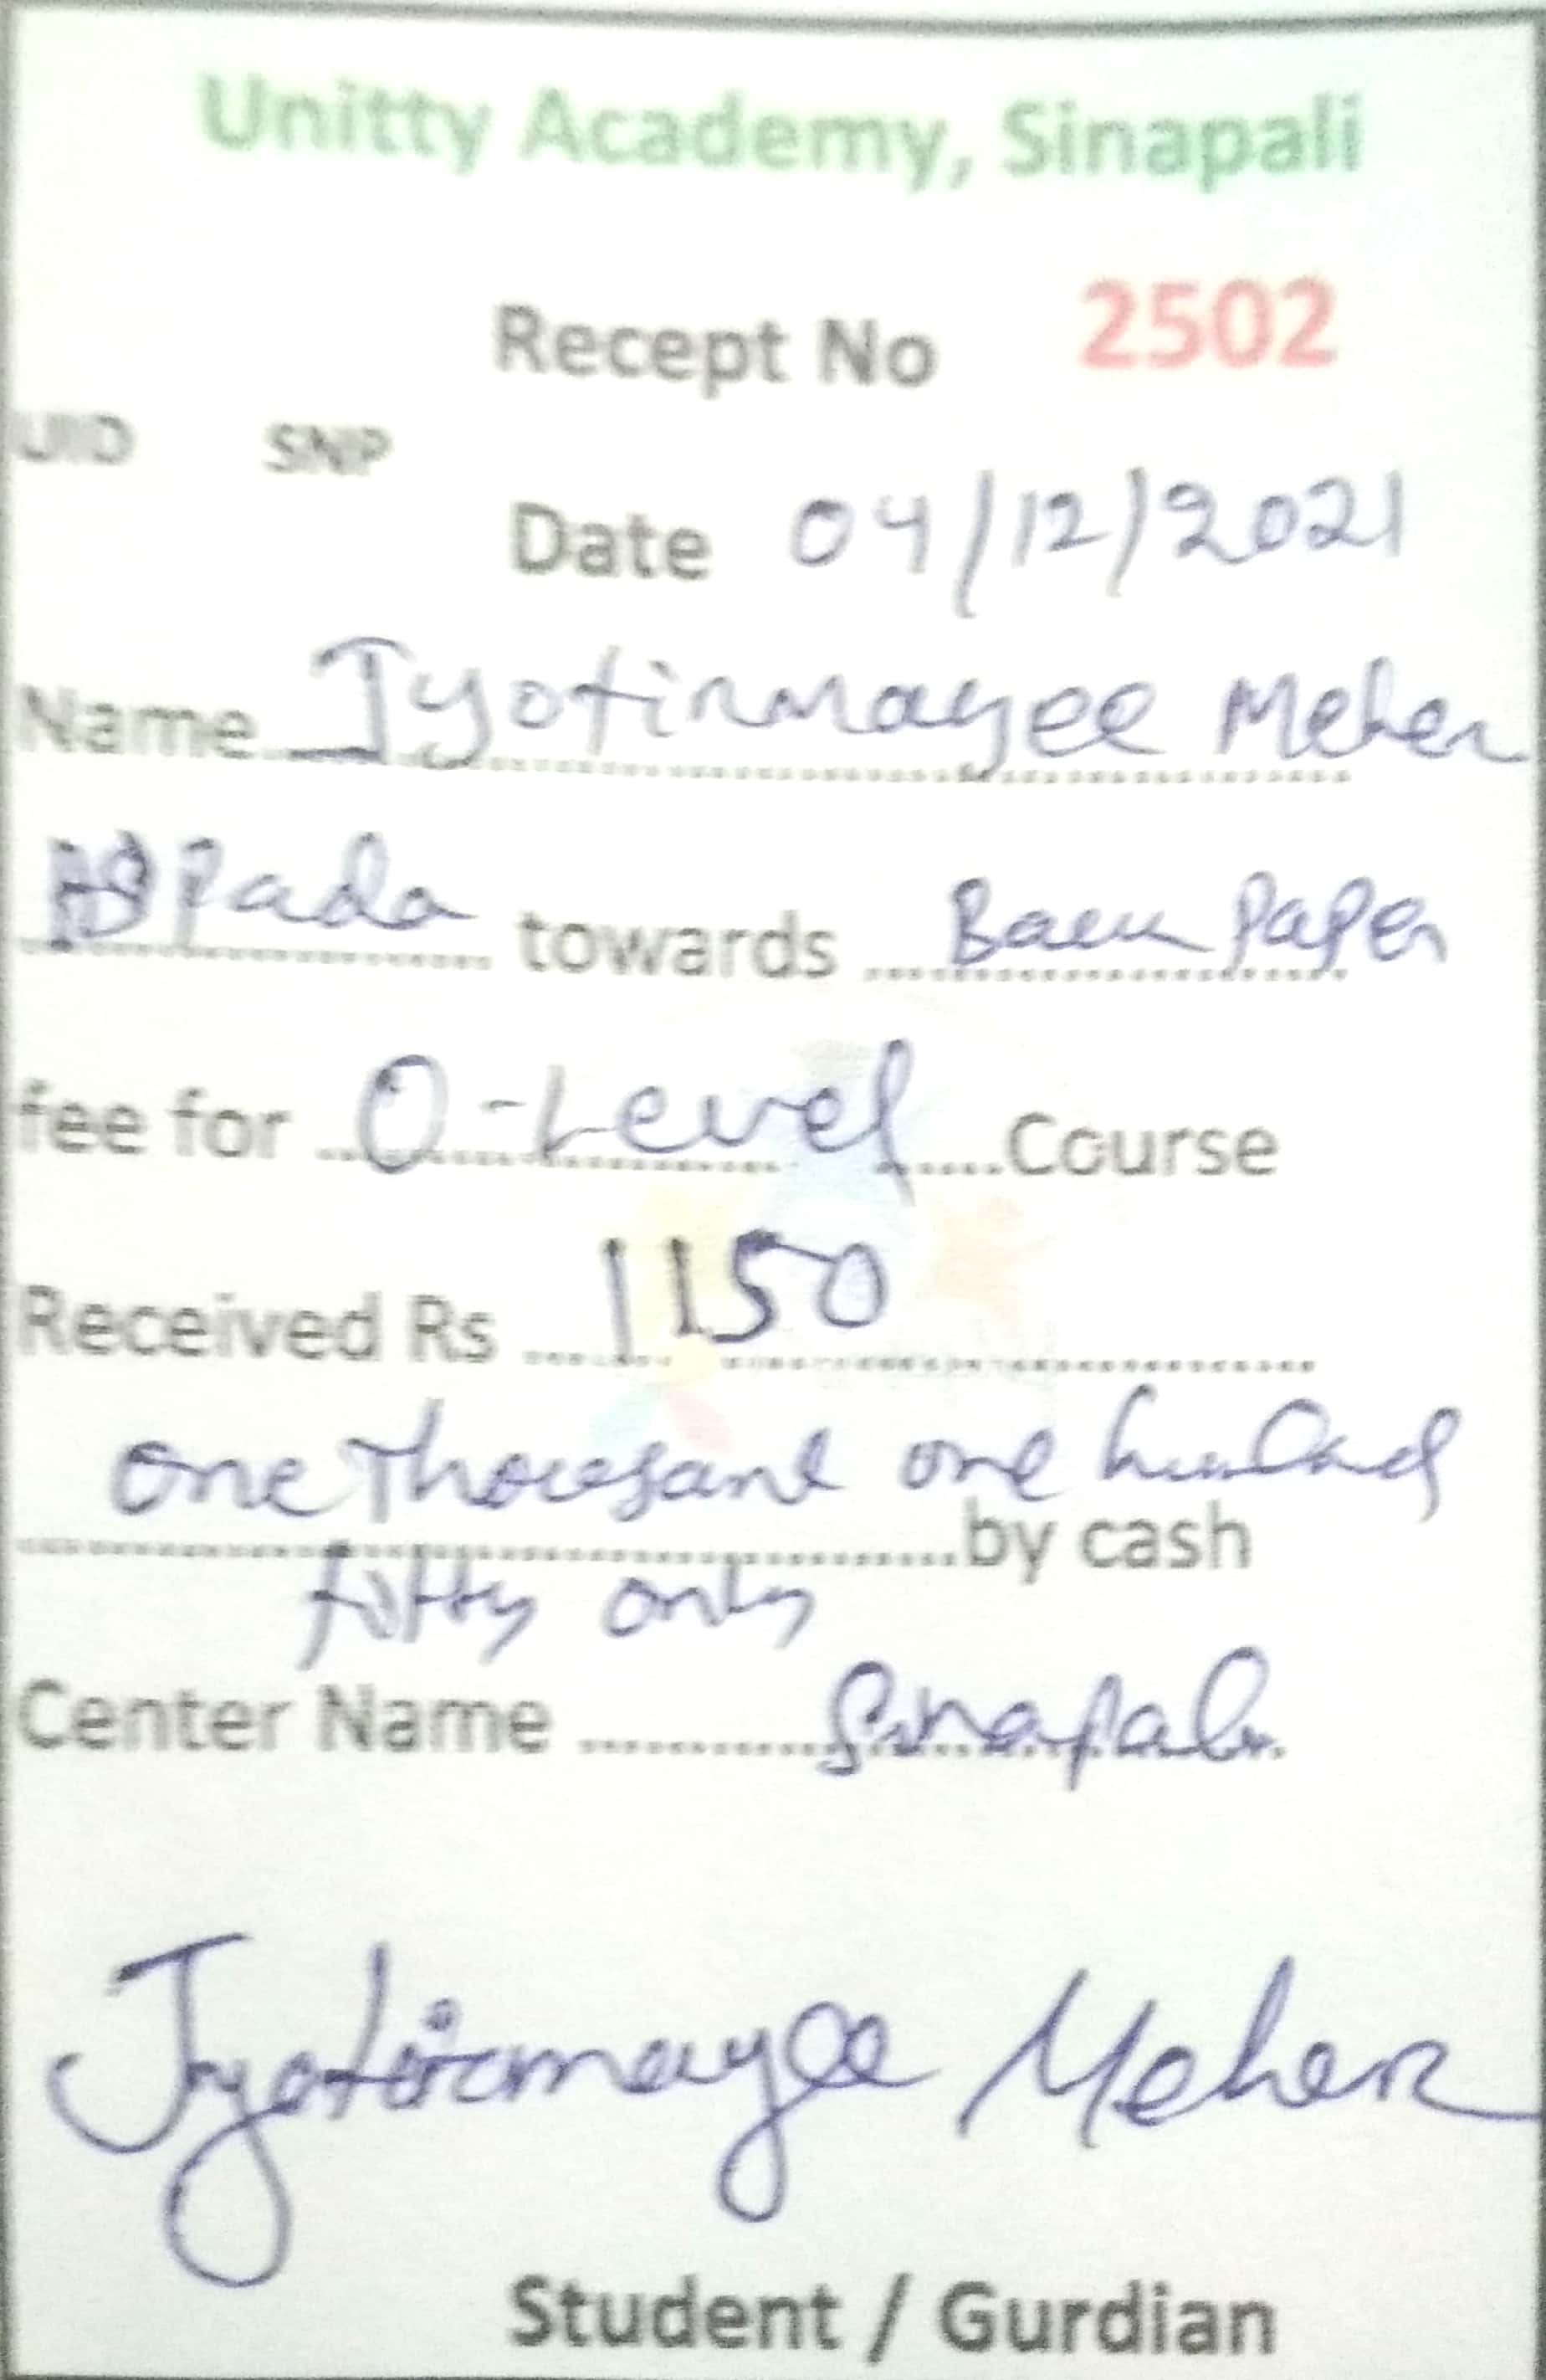 Unitty Academy, Sinapali
Recept No 2502
UID SNP
Date 04/12/2021
Name Jyotirmayee Meher
Pada towards Back Paper
fee for O-Level Course
Received Rs 1150
one thousand one hundred
by cash
fifty only
Center Name Sinapali
Jyotirmayee Meher
Student / Gurdian